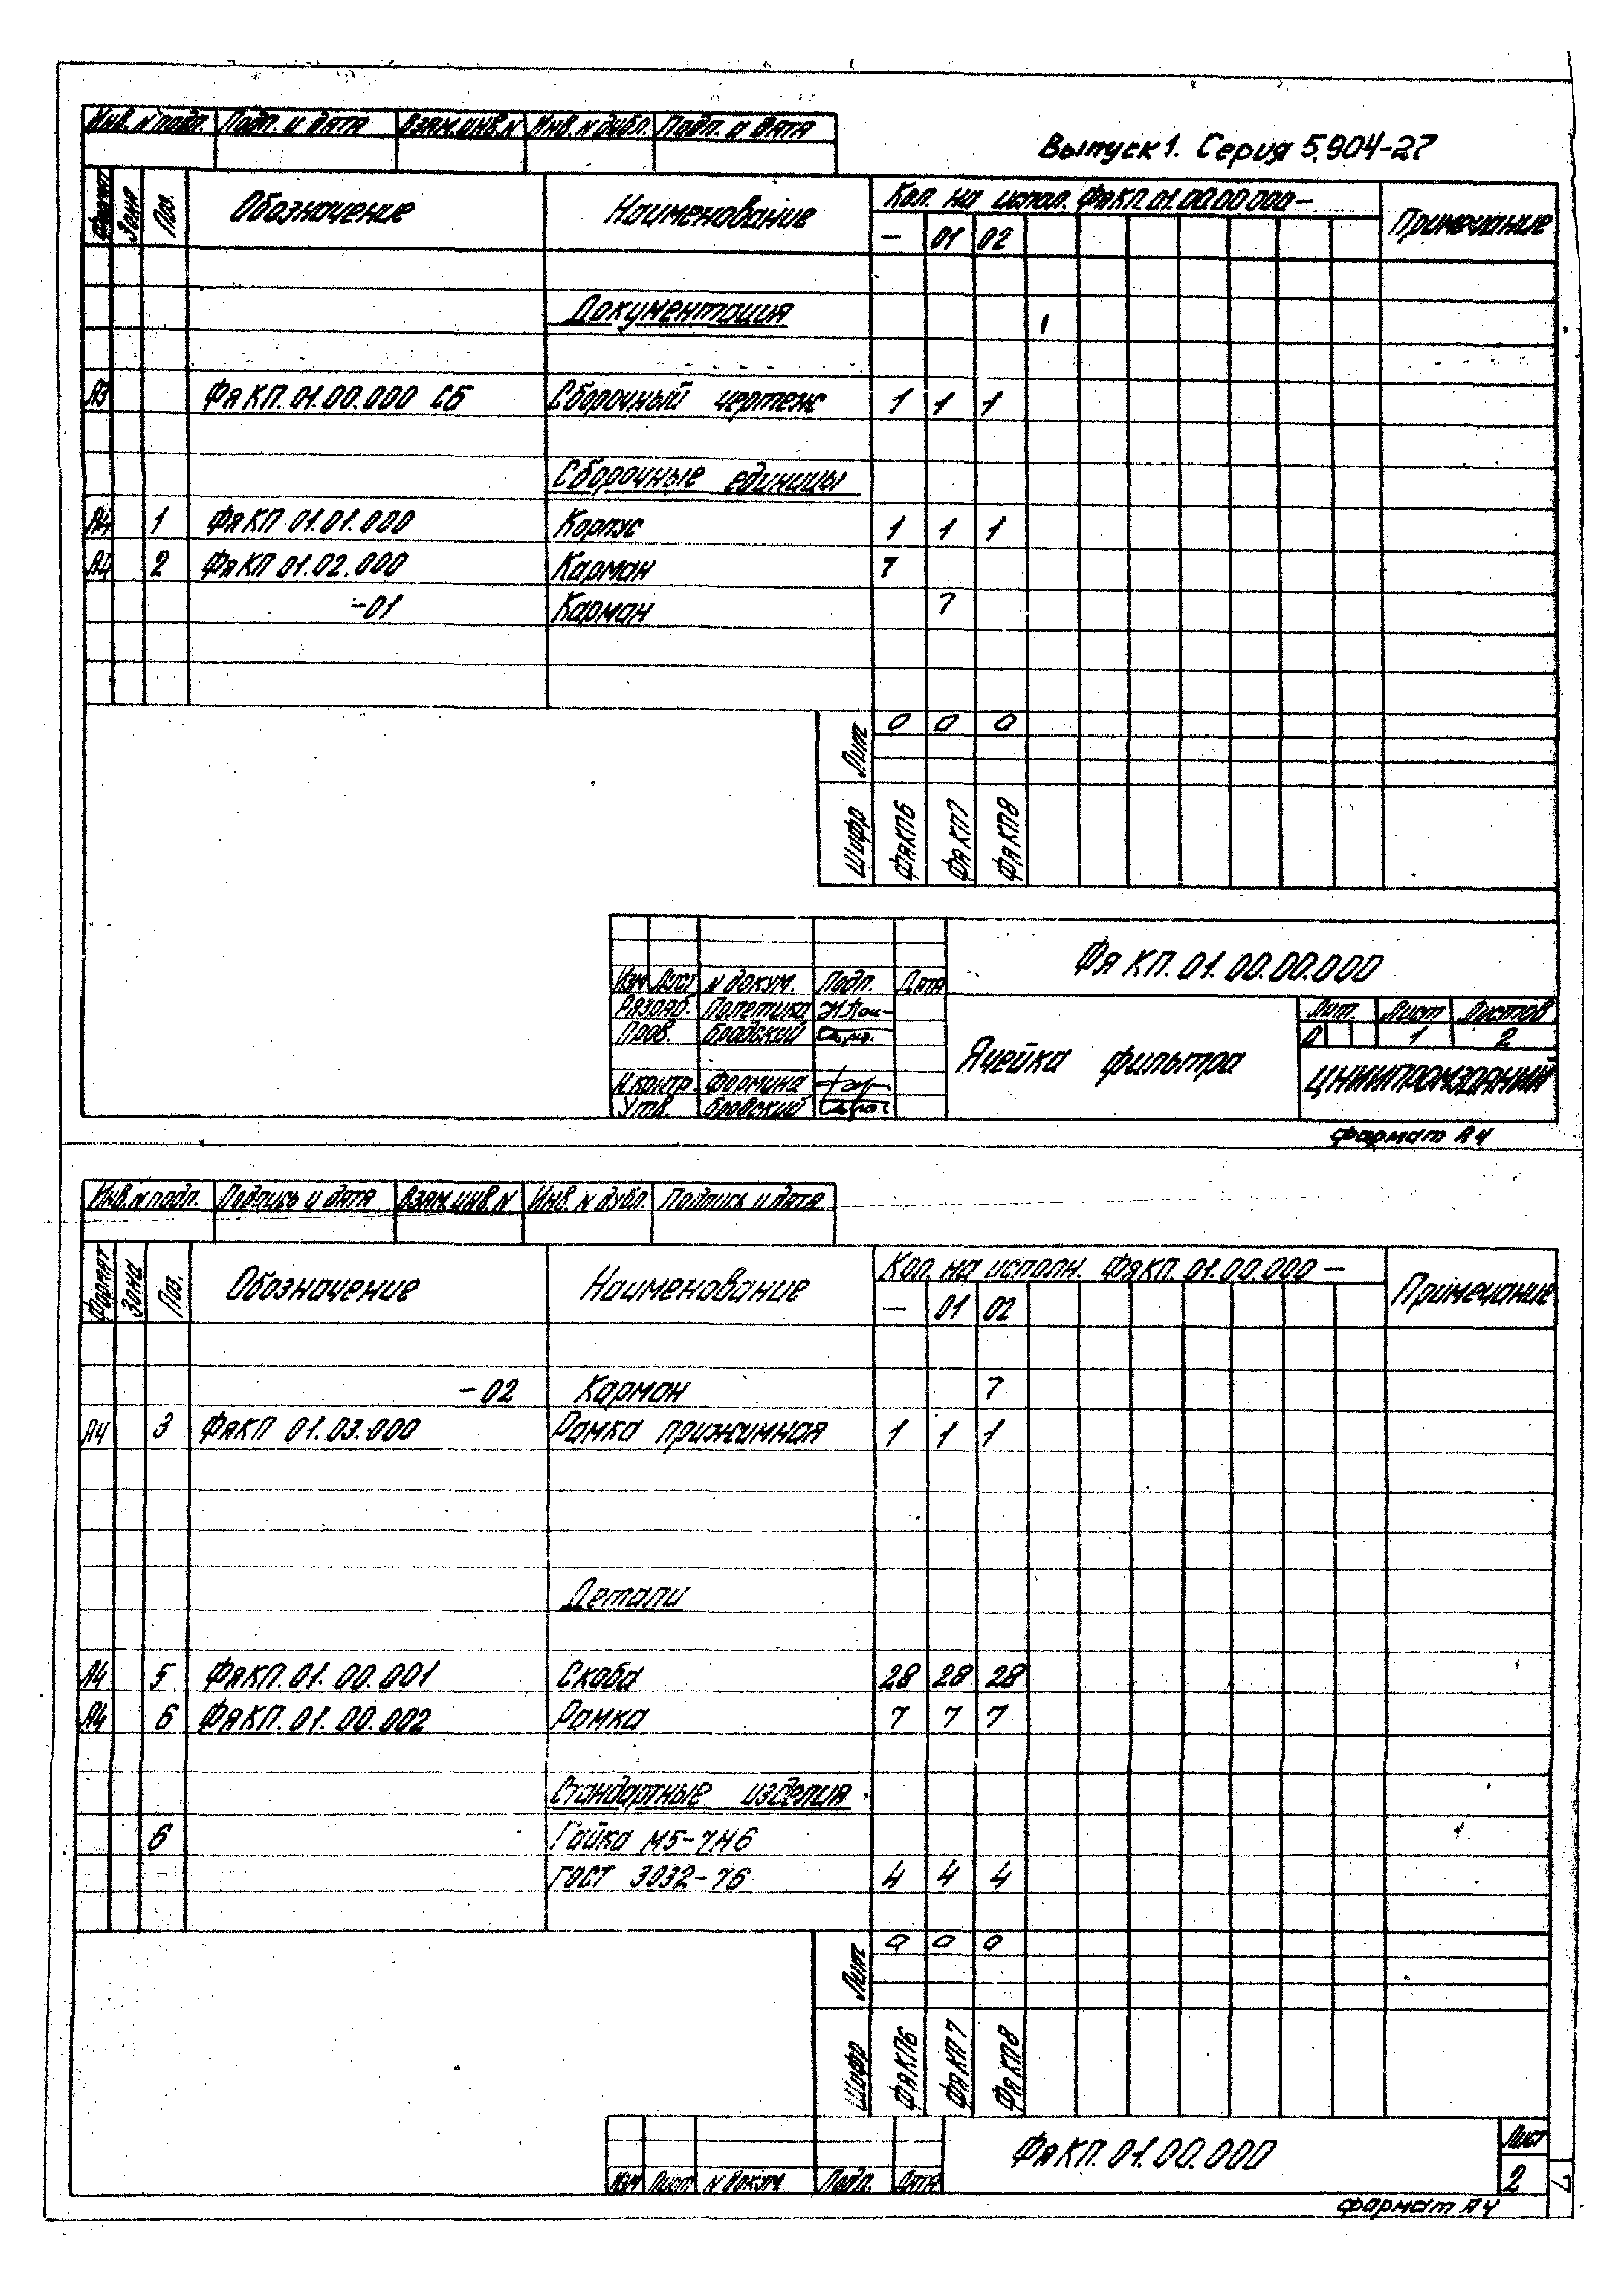 Инв. N подл. Подп. и дата Взам.инв.N Инв. N дубл. Подп. и дата
Выпуск 1. Серия 5.904-27
Формат Зона Поз. Обозначение Наименование Кол. на испол. ФяКП 01.00.00.000 — Примечание
— 01 02
Документация
А3 ФяКП. 01.00.000 СБ Сборочный чертеж 1 1 1
Сборочные единицы
А4 1 ФяКП 01.01.000 Корпус 1 1 1
А4 2 ФяКП 01.02.000 Карман 7
-01 Карман 7
Лит 0 0 0
Шифр ФяКП6 ФяКП7 ФяКП8
ФяКП. 01.00.00.000
Изм Лист N докум. Подп. Дата
Разраб. Полетика
Пров. Бродский
Н.контр Формина
Утв. Бродский
Ячейка фильтра
Лит. Лист Листов
0 1 2
ЦНИИПРОМЗДАНИЙ
Формат А4
Инв. N подл. Подпись и дата Взам.инв. N Инв. N дубл. Подпись и дата
Формат Зона Поз. Обозначение Наименование Кол. на исполн. ФяКП. 01.00.000 — Примечание
— 01 02
-02 Карман 7
А4 3 ФяКП 01.03.000 Рамка прижимная 1 1 1
Детали
А4 5 ФяКП. 01.00.001 Скоба 28 28 28
А4 6 ФяКП. 01.00.002 Рамка 7 7 7
Стандартные изделия
6 Гайка М5-7Н6
ГОСТ 3032-76 4 4 4
Лит 0 0 0
Шифр ФяКП6 ФяКП7 ФяКП8
ФяКП. 01.00.000
Лист
2
Изм Лист N докум. Подп. Дата
7
Формат А4